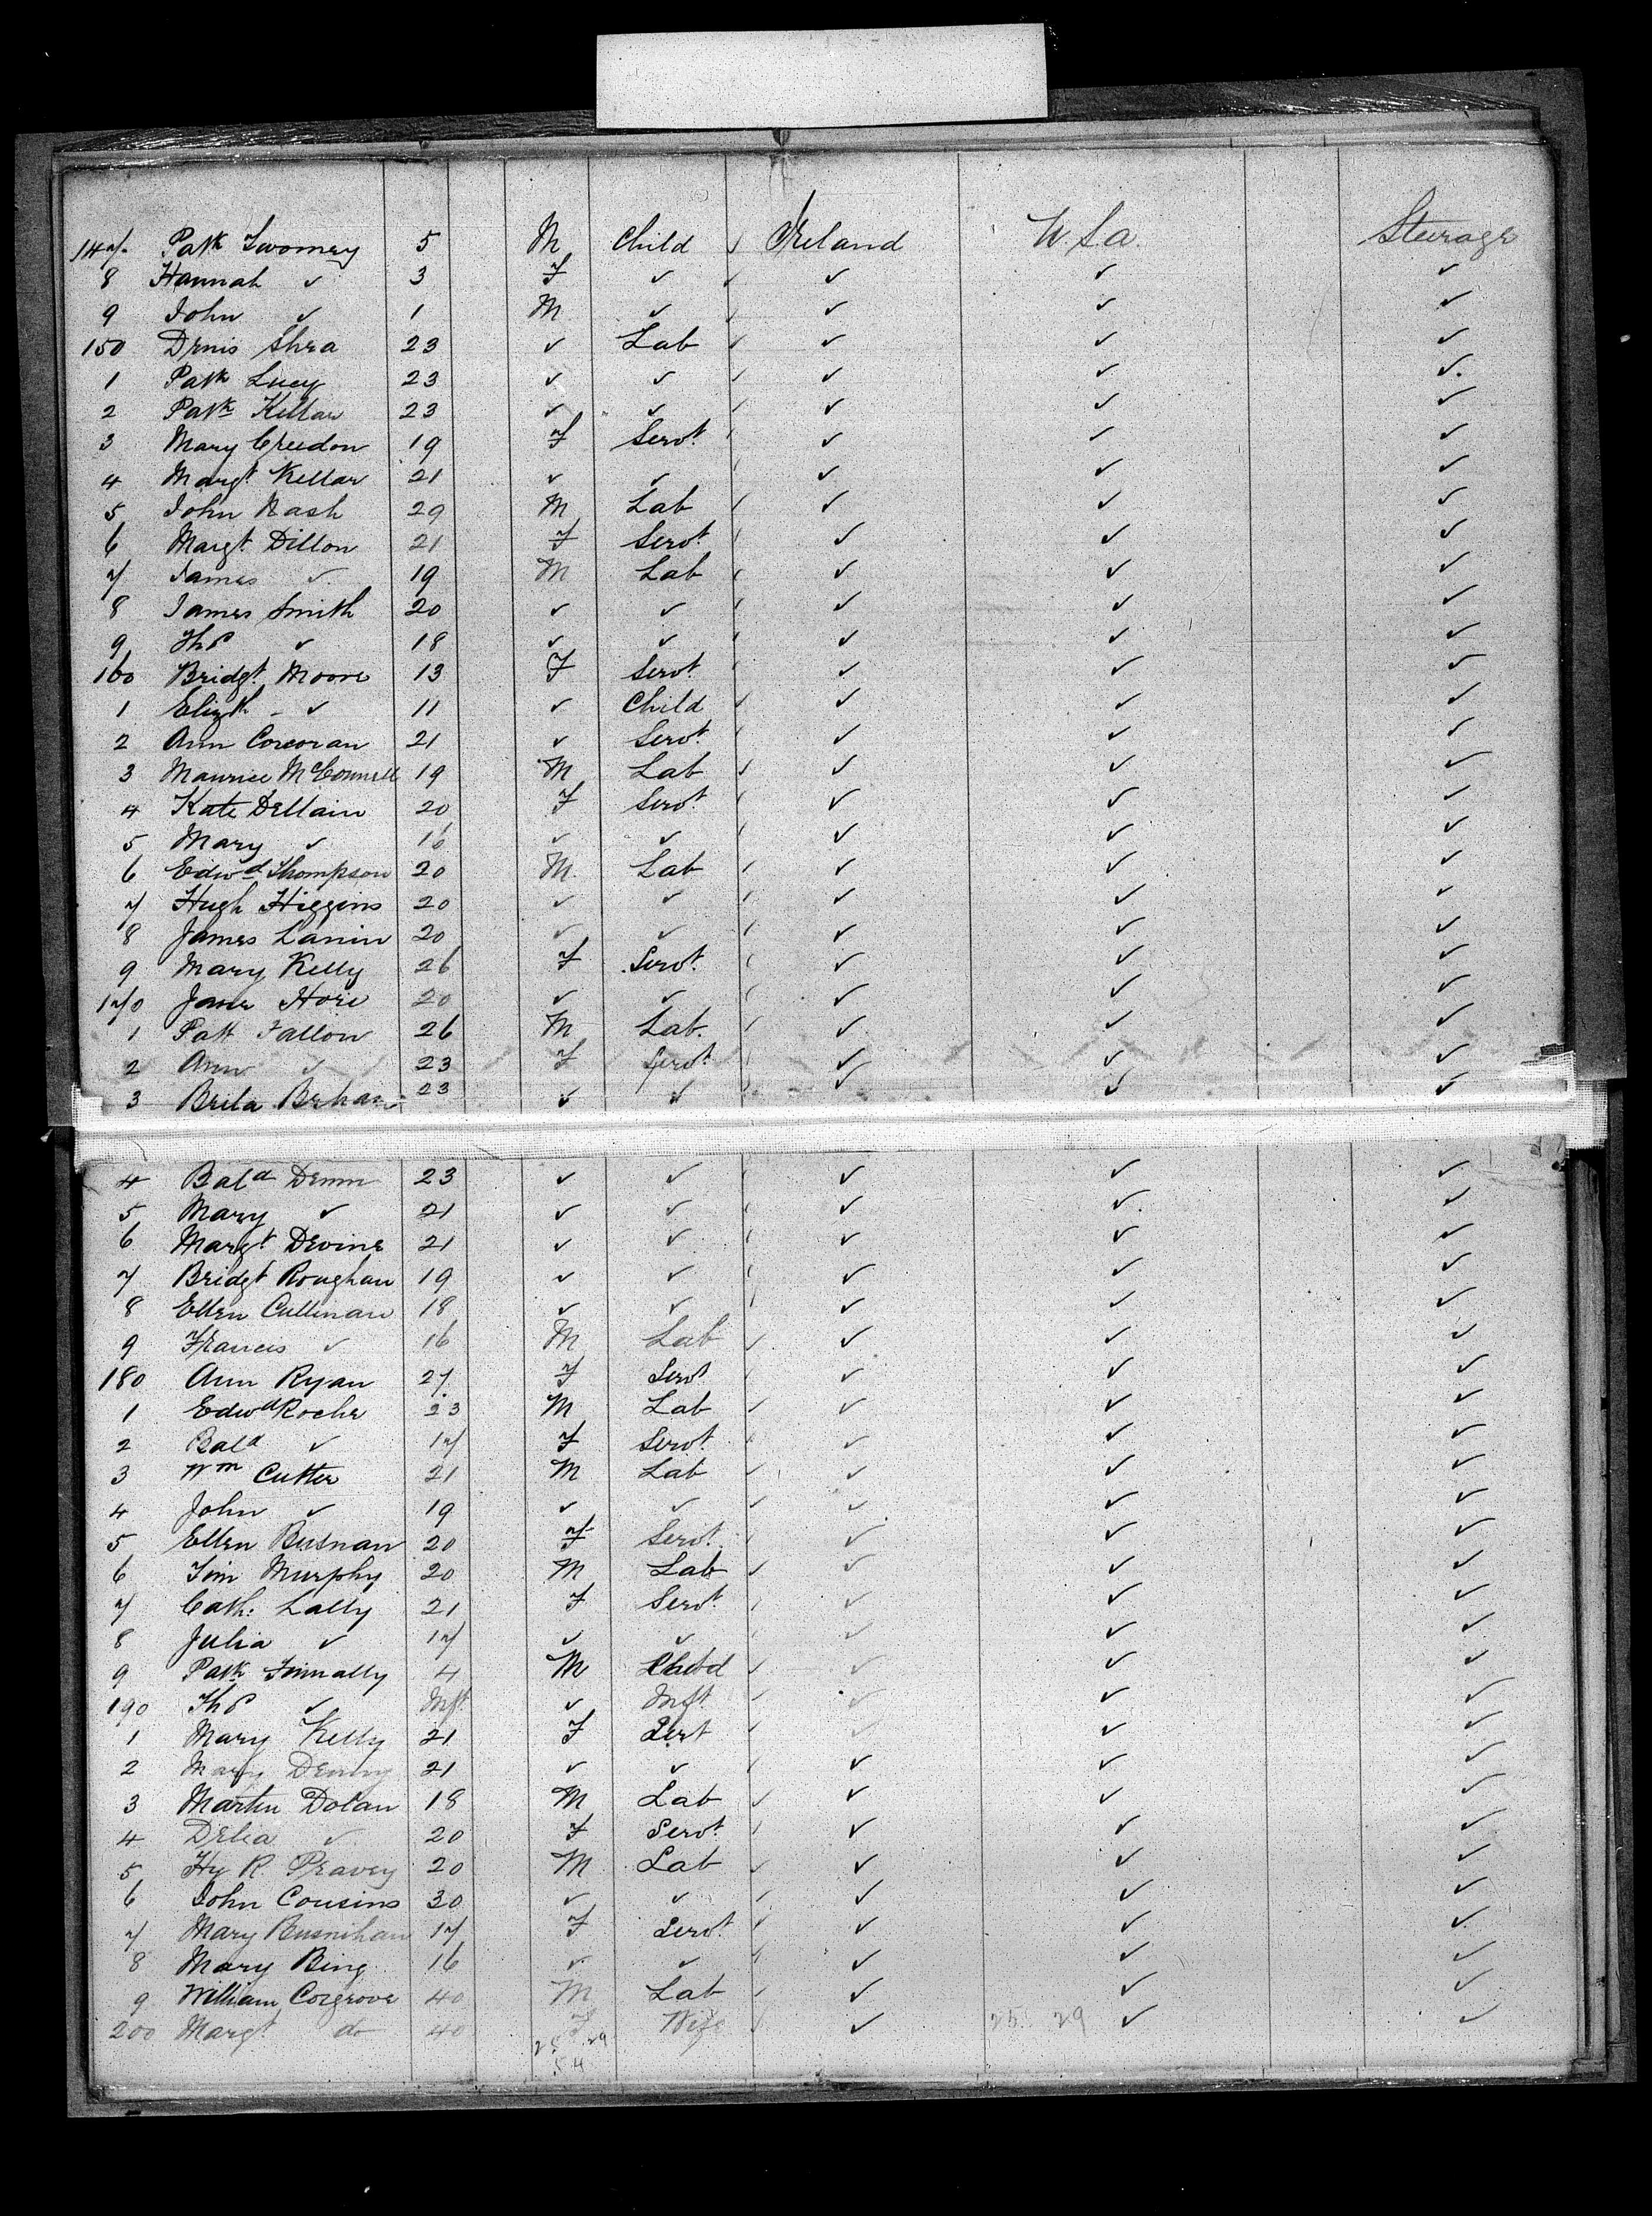 147 Patk Twomey 5 M Child Ireland U.S.a. Steerage
8 Hannah ✓ 3 F ✓ ✓ ✓ ✓
9 John ✓ 1 M ✓ ✓ ✓ ✓
150 Denis Shea 23 ✓ Lab ✓ ✓ ✓
1 Patk Lucy 23 ✓ ✓ ✓ ✓ ✓
2 Patk Kellar 23 ✓ ✓ ✓ ✓ ✓
3 Mary Creedon 19 F Servt ✓ ✓ ✓
4 Margt Kellar 21 ✓ ✓ ✓ ✓ ✓
5 John Nash 29 M Lab ✓ ✓ ✓
6 Margt Dillon 21 F Servt ✓ ✓ ✓
7 James ✓ 19 M Lab ✓ ✓ ✓
8 James Smith 20 ✓ ✓ ✓ ✓ ✓
9 Ths ✓ 18 ✓ ✓ ✓ ✓ ✓
160 Bridgt Moore 13 F Servt ✓ ✓ ✓
1 Elizth ✓ 11 ✓ Child ✓ ✓ ✓
2 Ann Corcoran 21 ✓ Servt ✓ ✓ ✓
3 Maurice McConnell 19 M Lab ✓ ✓ ✓
4 Kate Dellain 20 F Servt ✓ ✓ ✓
5 Mary ✓ 16 ✓ ✓ ✓ ✓ ✓
6 Edwd Thompson 20 M Lab ✓ ✓ ✓
7 Hugh Higgins 20 ✓ ✓ ✓ ✓ ✓
8 James Lanin 20 ✓ ✓ ✓ ✓ ✓
9 Mary Kelly 26 F Servt ✓ ✓ ✓
170 Jane Hore 20 ✓ ✓ ✓ ✓ ✓
1 Patt Fallon 26 M Lab ✓ ✓ ✓
2 Ann ✓ 23 F Servt ✓ ✓ ✓
3 23 ✓ ✓ ✓ ✓ ✓
4 Bald 23 ✓ ✓ ✓ ✓ ✓
5 Mary ✓ 21 ✓ ✓ ✓ ✓ ✓
6 Margt Devine 21 ✓ ✓ ✓ ✓ ✓
7 Bridgt Roughan 19 ✓ ✓ ✓ ✓ ✓
8 Ellen Cullinan 18 ✓ ✓ ✓ ✓ ✓
9 Francis ✓ 16 M Lab ✓ ✓ ✓
180 Ann Ryan 27 F Servt ✓ ✓ ✓
1 Edwd Roche 23 M Lab ✓ ✓ ✓
2 Bald ✓ 17 F Servt ✓ ✓ ✓
3 Wm Cutter 21 M Lab ✓ ✓ ✓
4 John ✓ 19 ✓ ✓ ✓ ✓ ✓
5 Ellen Busnan 20 F Servt ✓ ✓ ✓
6 Tim Murphy 20 M Lab ✓ ✓ ✓
7 Cath: Lally 21 F Servt ✓ ✓ ✓
8 Julia ✓ 17 ✓ ✓ ✓ ✓ ✓
9 Patk Finnally 4 M Child ✓ ✓ ✓
190 Ths ✓ Inft ✓ Inft ✓ ✓ ✓
1 Mary Kelly 21 F Sert ✓ ✓ ✓
2 Mary Denny 21 ✓ ✓ ✓ ✓ ✓
3 Martin Dolan 18 M Lab ✓ ✓ ✓
4 Delia ✓ 20 F Servt ✓ ✓ ✓
5 Hy R. Peavey 20 M Lab ✓ ✓ ✓
6 John Cousins 30 ✓ ✓ ✓ ✓ ✓
7 Mary Busnihan 17 F Servt ✓ ✓ ✓
8 Mary Bing 16 ✓ ✓ ✓ ✓ ✓
9 William Cosgrove 40 M Lab ✓ ✓ ✓
200 Margt do 40 F Wife ✓ 25 29 ✓ ✓
25 29
54